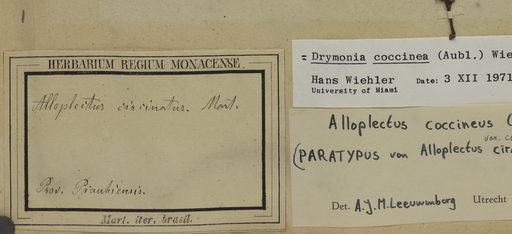 HERBARIUM REGIUM MONACENSE
Alloplectus circinatus. Mart.
Prov. Piauhiensis.
Mart. iter. brasil.
= Drymonia coccinea (Aubl.) Wie
Hans Wiehler Date: 3 XII 1971
University of Miami
Alloplectus coccineus (
var.
(PARATYPUS van Alloplectus cir
Det. A.J.M. Leeuwenberg Utrecht